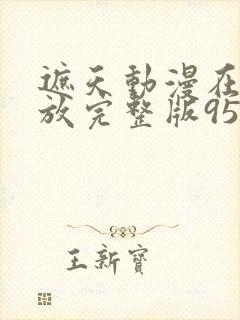 遮天動漫在
放完整版95
王新寶